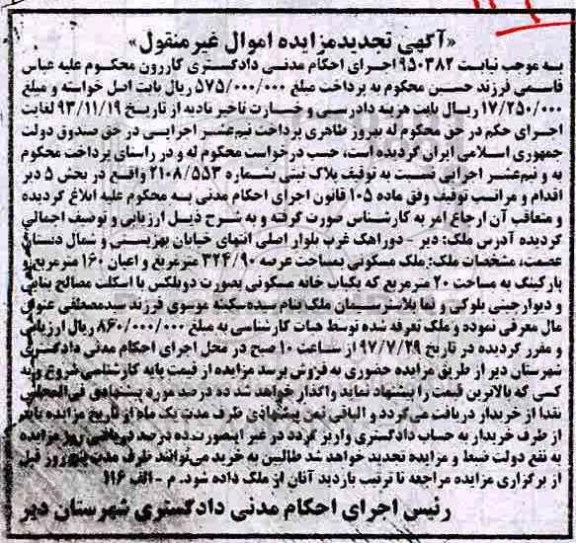 «آگهی تجدیدمزایده اموال غیرمنقول»
به موجب نیابت ۹۵۰۳۸۲ اجرای احکام مدنی دادگستری کازرون محکوم علیه عباس
قاسمی فرزند حسن محکوم به پرداخت مبلغ ۵۷۵/۰۰۰/۰۰۰ ریال بابت اصل خواسته و مبلغ
۱۷/۲۵۰/۰۰۰ ریال بابت هزینه دادرسی و خسارت تاخیر تادیه از تاریخ ۹۳/۱۱/۱۹ لغایت
اجرای حکم در حق محکوم له بهروز طاهری پرداخت نیم‌عشر اجرایی در حق صندوق دولت
جمهوری اسلامی ایران گردیده است، حسب درخواست محکوم له و در راستای پرداخت محکوم
به و نیم‌عشر اجرایی نسبت به توقیف پلاک ثبتی بشماره ۲۱۰۸/۵۵۳ واقع در بخش ۵ دیر
اقدام و مراتب توقیف وفق ماده ۱۰۵ قانون اجرای احکام مدنی به محکوم علیه ابلاغ گردیده
و متعاقب آن ارجاع امر به کارشناس صورت گرفته و به شرح ذیل ارزیابی و توصیف اجمالی
گردیده آدرس ملک: دیر - دوراهک غرب بلوار اصلی انتهای خیابان بهزیستی و شمال دبستان
عصمت، مشخصات ملک: ملک مسکونی بمساحت عرصه ۳۲۴/۹۰ مترمربع و اعیان ۱۶۰ مترمربع و
پارکینگ به مساحت ۲۰ مترمربع که یکباب خانه مسکونی بصورت دوبلکس با اسکلت مصالح بنایی
و دیوارچینی بلوکی و نما پلاسترسیمان ملک بنام سیده‌سکینه موسوی فرزند سیدمصطفی عنوان
مال معرفی نموده و ملک تعرفه شده توسط هیات کارشناسی به مبلغ ۸۶۰/۰۰۰/۰۰۰ ریال ارزیابی
و مقرر گردیده در تاریخ ۹۷/۷/۲۹ از ساعت ۱۰ صبح در محل اجرای احکام مدنی دادگستری
شهرستان دیر از طریق مزایده حضوری به فروش برسد مزایده از قیمت پایه کارشناسی شروع و به
کسی که بالاترین قیمت را پیشنهاد نماید واگذار خواهد شد ده درصد مورد پیشنهادی فی‌المجلس
نقدا از خریدار دریافت می‌گردد و الباقی ثمن پیشنهادی ظرف مدت یک ماه از تاریخ مزایده باید
از طرف خریدار به حساب دادگستری واریز گردد در غیر اینصورت ده درصد دریافتی روز مزایده
به نفع دولت ضبط و مزایده تجدید خواهد شد طالبین به خرید می‌توانند ظرف مدت پنج روز قبل
از برگزاری مزایده مراجعه تا ترتیب بازدید آنان از ملک داده شود. م - الف ۱۱۶
رئیس اجرای احکام مدنی دادگستری شهرستان دیر